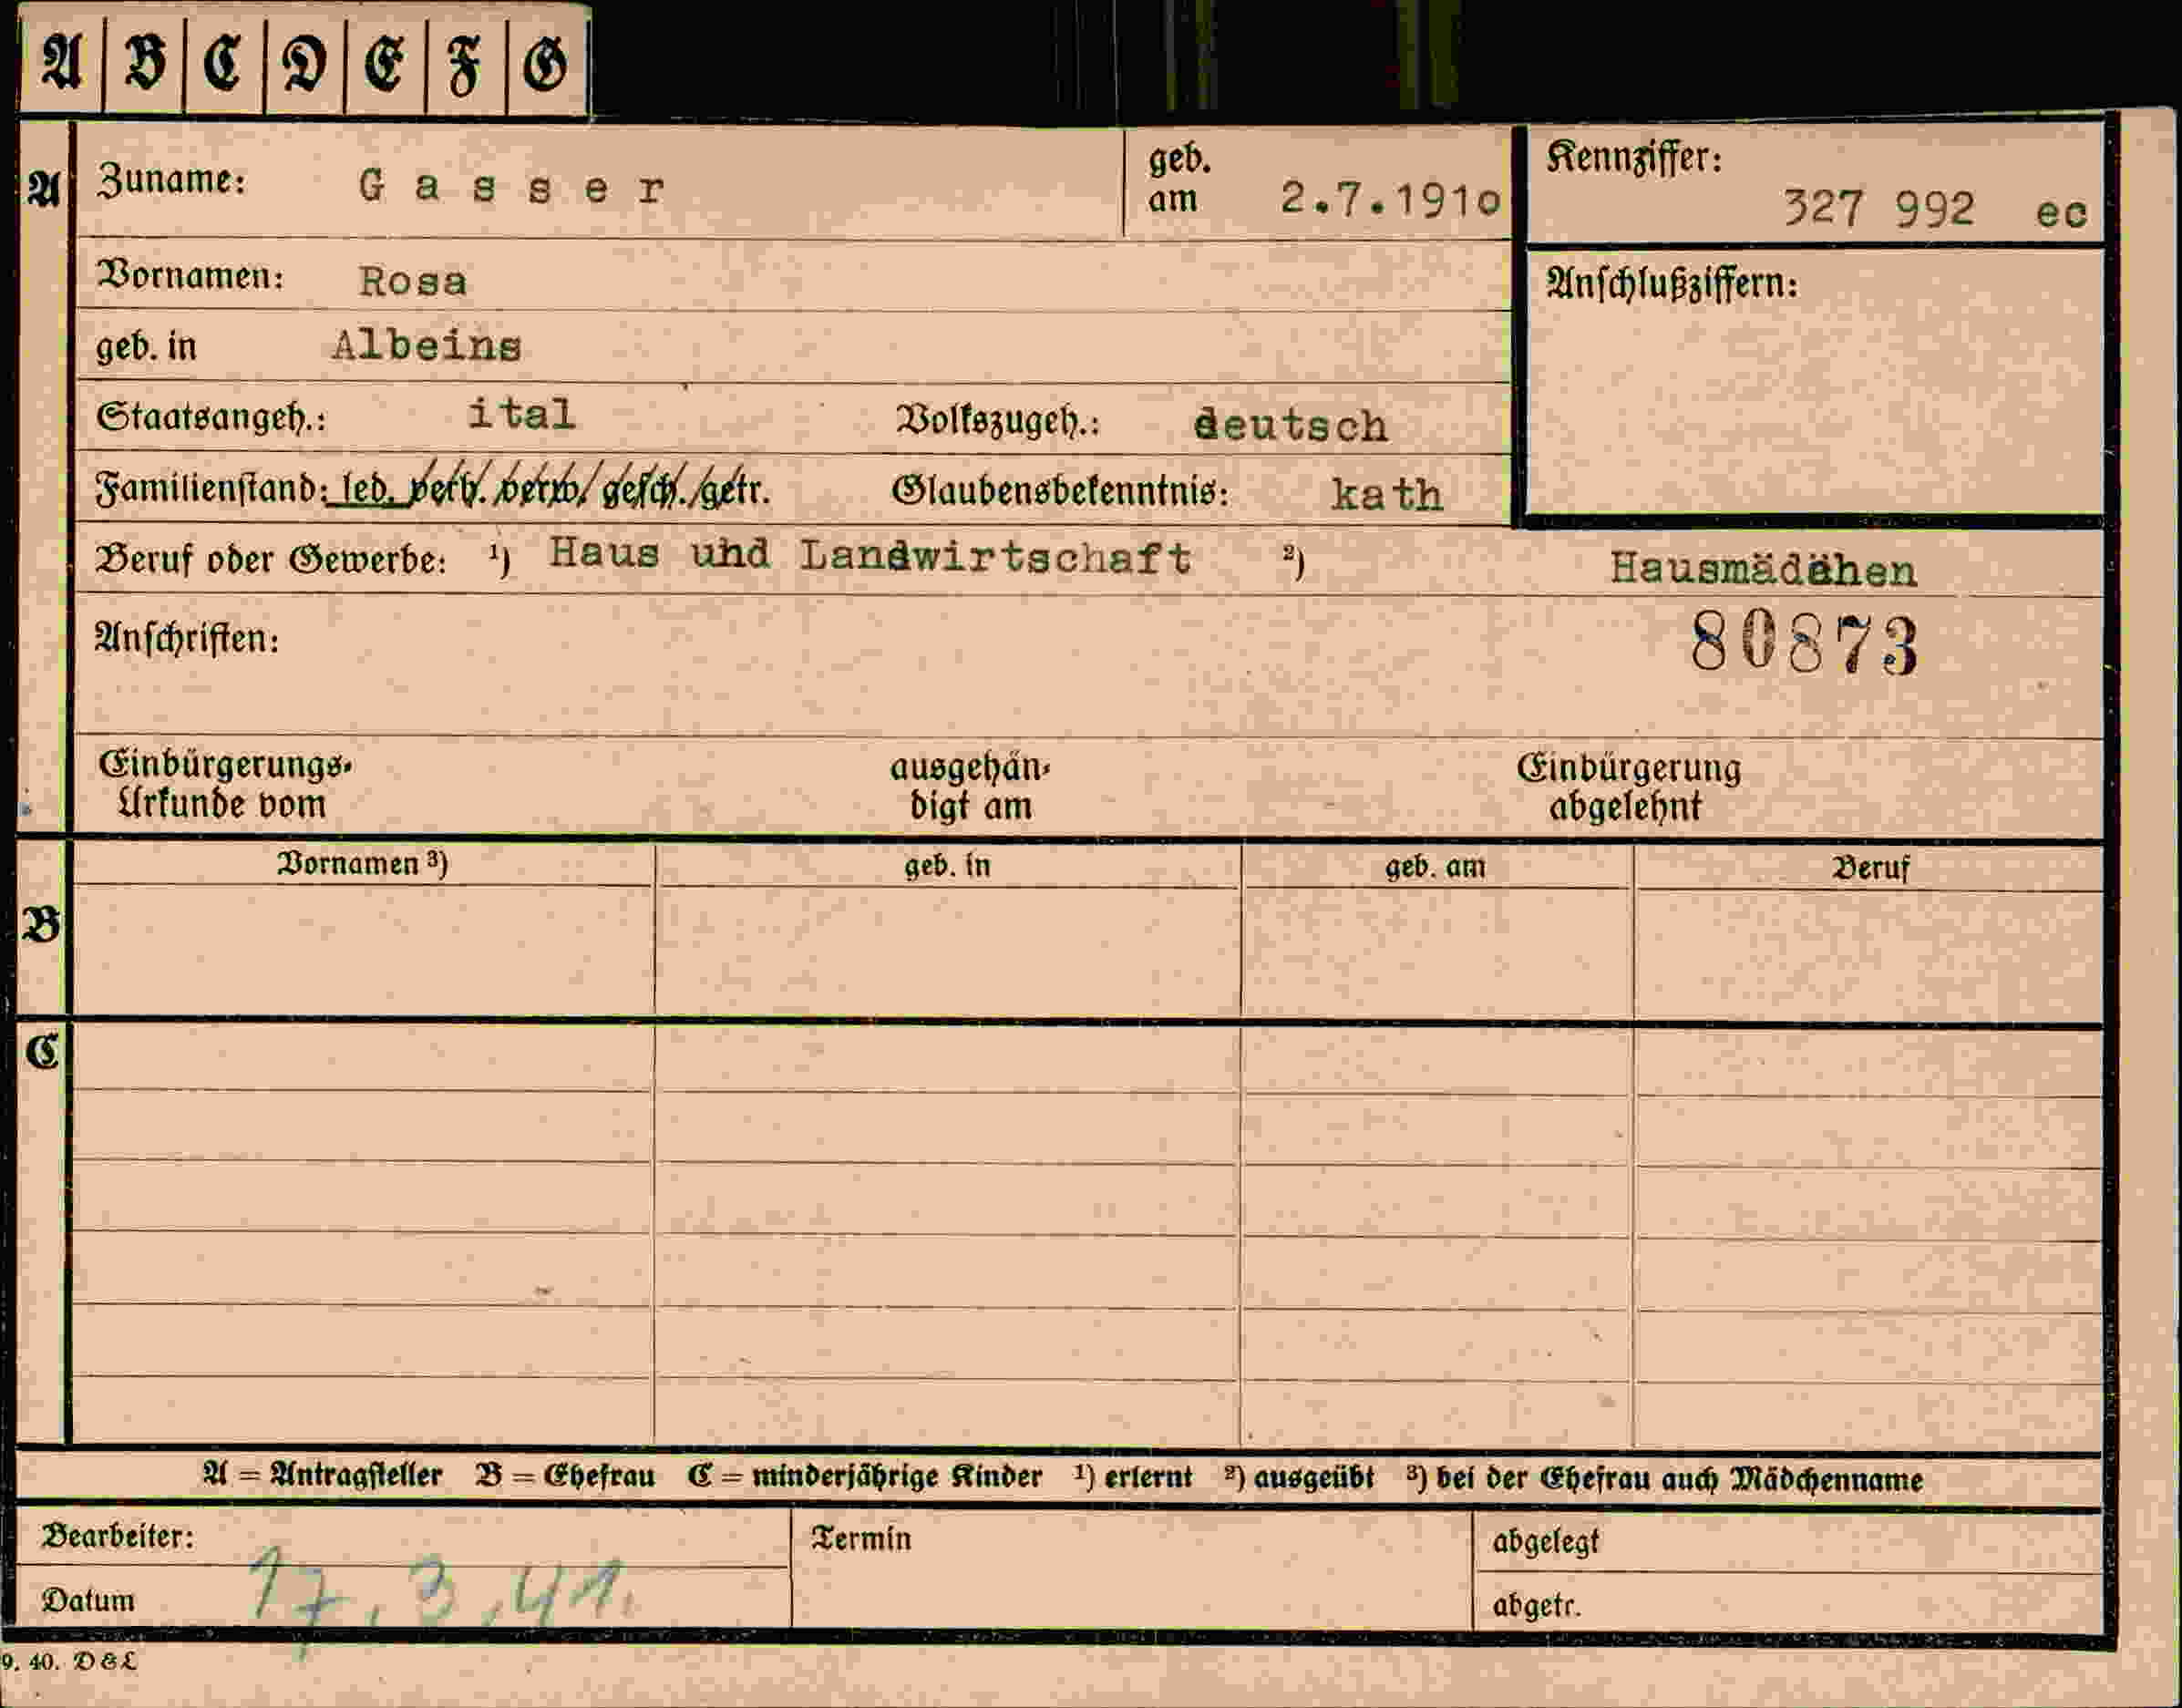 A B C D E F G
A Zuname: Gasser geb. am 2.7.1910 Kennziffer: 327 992 ec
Vornamen: Rosa Anschlußziffern:
geb. in Albeins
Staatsangeh.: ital Volkszugeh.: deutsch
Familienstand: led. verh. verw. gesch. getr. Glaubensbekenntnis: kath
Beruf oder Gewerbe: ¹) Haus uhd Landwirtschaft ²) Hausmädähen
Anschriften: 80873
Einbürgerungs- ausgehän- Einbürgerung
Urkunde vom digt am abgelehnt
Vornamen ³) geb. in geb. am Beruf
B
C
A = Antragsteller B = Ehefrau C = minderjährige Kinder ¹) erlernt ²) ausgeübt ³) bei der Ehefrau auch Mädchenname
Bearbeiter: Termin abgelegt
Datum 17.3.41. abgetr.
9. 40. D&L